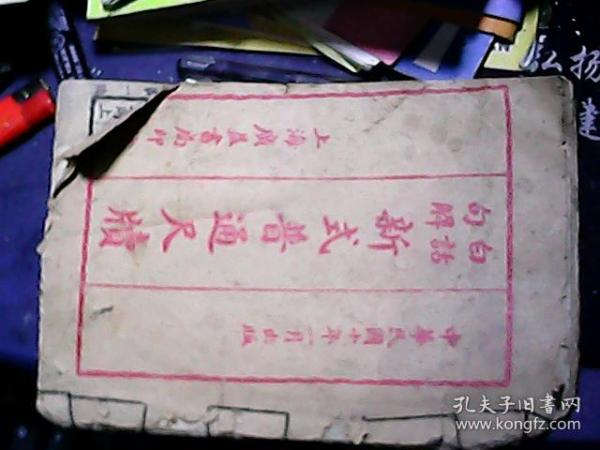 中華民國十年一月出版
白話
句解
新式普通尺牘
上海廣益書局印
弘扬
孔夫子旧书网
www.kongfz.com